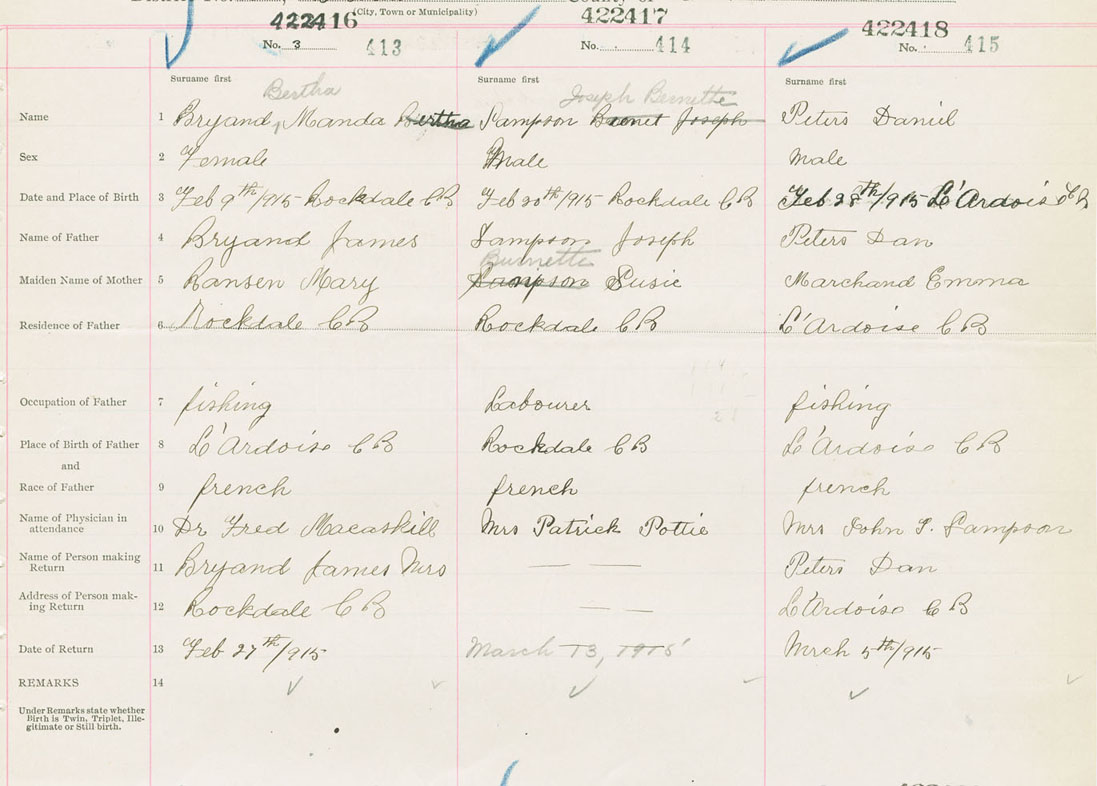 District No. County of
422416 (City, Town or Municipality) 422417 422418
No. 3 413 No. 414 No. 415
Surname first Surname first Surname first
Bertha Joseph Bernette
Name 1 Bryand, Manda Bertha Sampson Joseph Peters Daniel
Sex 2 Female Male Male
Date and Place of Birth 3 Feb 9th/915 Rockdale CB Feb 20th/915 Rockdale CB Feb 28th/915 L'Ardoise CB
Name of Father 4 Bryand James Sampson Joseph Peters Dan
Burnette
Maiden Name of Mother 5 Ransen Mary Sampson Susie Marchand Emma
Residence of Father 6 Rockdale CB Rockdale CB L'Ardoise CB
Occupation of Father 7 fishing Labourer fishing
Place of Birth of Father 8 L'Ardoise CB Rockdale CB L'Ardoise CB
and
Race of Father 9 french french french
Name of Physician in attendance 10 Dr Fred Macaskill Mrs Patrick Pottie Mrs John T. Sampson
Name of Person making Return 11 Bryand James Mrs — — Peters Dan
Address of Person mak-ing Return 12 Rockdale CB — — L'Ardoise CB
Date of Return 13 Feb 27th/915 March 13, 1915 Mrch 5th/915
REMARKS 14
Under Remarks state whether
Birth is Twin, Triplet, Ille-
gitimate or Still birth.